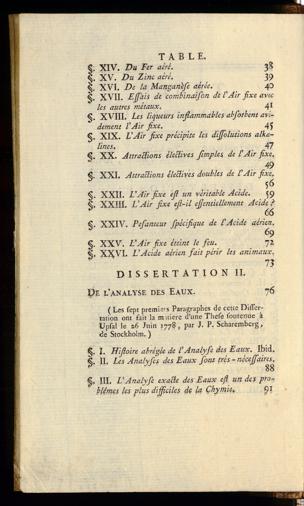 TABLE.
§. XIV. Du Fer aéré. 38
§. XV. Du Zinc aéré. 39
§. XVI. De la Manganèſe aérée. 40
§. XVII. Eſſais de combinaiſon de l'Air fixe avec
les autres métaux. 41
§. XVIII. Les liqueurs inflammables abſorbent avi-
dement l'Air fixe. 45
§. XIX. L'Air fixe précipite les diſſolutions alka-
lines. 47
§. XX. Attractions électives ſimples de l'Air fixe.
49
§. XXI. Attractions électives doubles de l'Air fixe.
56
§. XXII. L'Air fixe eſt un véritable Acide. 59
§. XXIII. L'Air fixe eſt-il eſſentiellement Acide ?
66
§. XXIV. Peſanteur ſpécifique de l'Acide aérien.
69
§. XXV. L'Air fixe éteint le feu. 72
§. XXVI. L'Acide aérien fait périr les animaux.
73
DISSERTATION II.
DE L'ANALYSE DES EAUX. 76
( Les ſept premiers Paragraphes de cette Diſſer-
tation ont fait la matiere d'une Theſe ſoutenue à
Upſal le 26 Juin 1778, par J. P. Scharemberg,
de Stockholm. )
§. I. Hiſtoire abrégée de l'Analyſe des Eaux. Ibid.
§. II. Les Analyſes des Eaux ſont très-néceſſaires.
88
§. III. L'Analyſe exacte des Eaux eſt un des pro-
blêmes les plus difficiles de la Chymie. 91